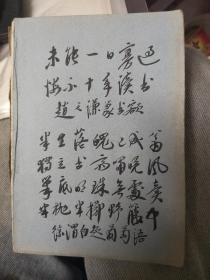 未能一日寡过
悔不十年读书
赵之谦书
半生落魄已成翁
独立书斋啸晚风
笔底明珠無處賣
半抛半掷野藤中
徐渭自题葡萄语